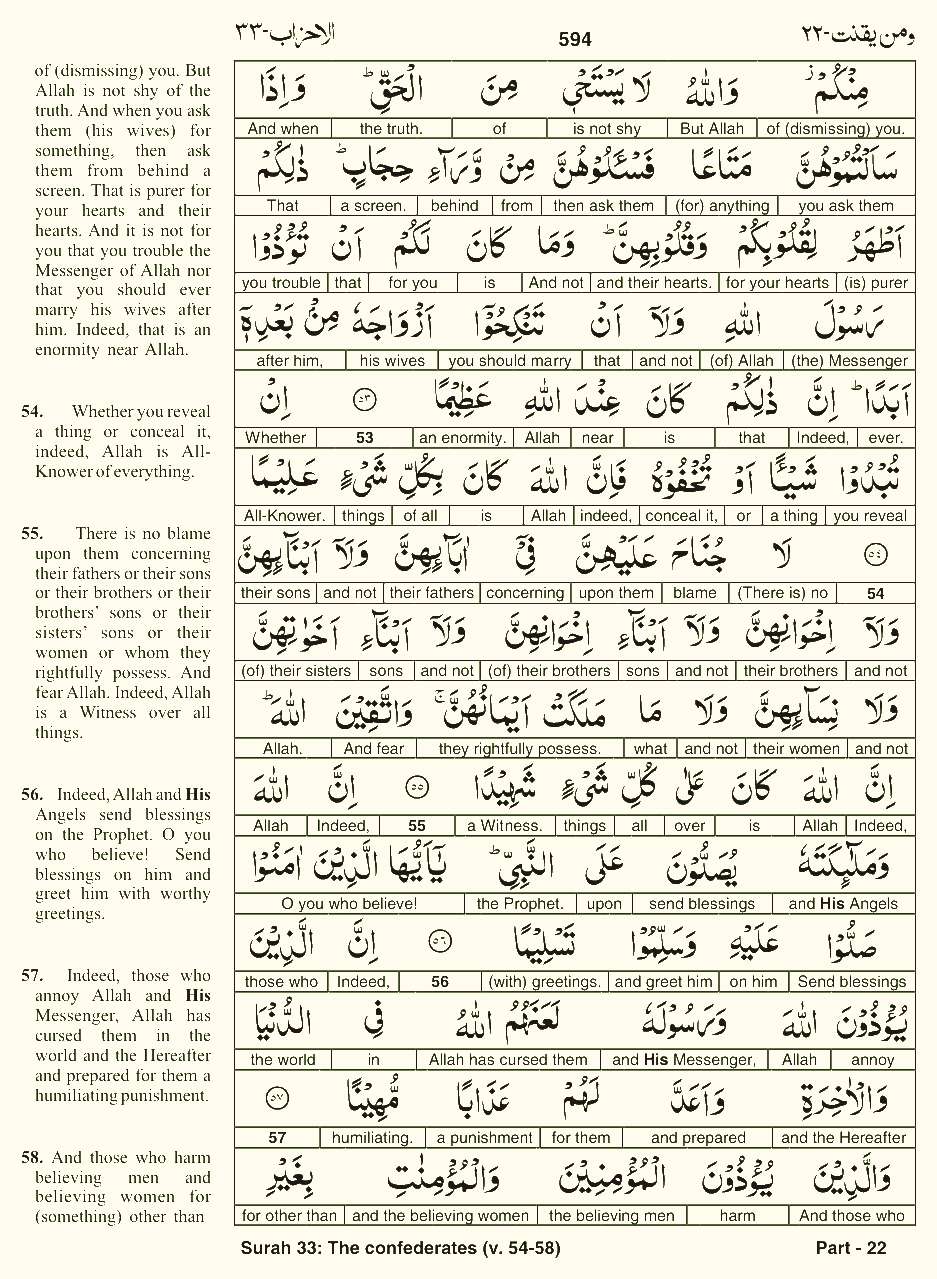 الاحزاب-٣٣
594
ومن يقنت-٢٢
of (dismissing) you. But
Allah is not shy of the
truth. And when you ask
them (his wives) for
something, then ask
them from behind a
screen. That is purer for
your hearts and their
hearts. And it is not for
you that you trouble the
Messenger of Allah nor
that you should ever
marry his wives after
him. Indeed, that is an
enormity near Allah.
54. Whether you reveal
a thing or conceal it,
indeed, Allah is All-
Knower of everything.
55. There is no blame
upon them concerning
their fathers or their sons
or their brothers or their
brothers’ sons or their
sisters’ sons or their
women or whom they
rightfully possess. And
fear Allah. Indeed, Allah
is a Witness over all
things.
56. Indeed, Allah and His
Angels send blessings
on the Prophet. O you
who believe! Send
blessings on him and
greet him with worthy
greetings.
57. Indeed, those who
annoy Allah and His
Messenger, Allah has
cursed them in the
world and the Hereafter
and prepared for them a
humiliating punishment.
58. And those who harm
believing men and
believing women for
(something) other than
مِنْكُمْ ۡ وَاللّٰهُ لَا يَسْتَحْيٖ مِنَ الْحَقِّ ؕ وَاِذَا
And when the truth. of is not shy But Allah of (dismissing) you.
سَاَلْتُمُوْهُنَّ مَتَاعًا فَسْـَٔلُوْهُنَّ مِنْ وَّرَآءِ حِجَابٍ ؕ ذٰلِكُمْ
That a screen. behind from then ask them (for) anything you ask them
اَطْهَرُ لِقُلُوْبِكُمْ وَقُلُوْبِهِنَّ ؕ وَمَا كَانَ لَكُمْ اَنْ تُؤْذُوْا
you trouble that for you is And not and their hearts. for your hearts (is) purer
رَسُوْلَ اللّٰهِ وَلَاۤ اَنْ تَنْكِحُوْۤا اَزْوَاجَهٗ مِنْۢ بَعْدِهٖۤ
after him, his wives you should marry that and not (of) Allah (the) Messenger
اَبَدًا ؕ اِنَّ ذٰلِكُمْ كَانَ عِنْدَ اللّٰهِ عَظِيْمًا ٥٣ اِنْ
Whether 53 an enormity. Allah near is that Indeed, ever.
تُبْدُوْا شَيْـًٔا اَوْ تُخْفُوْهُ فَاِنَّ اللّٰهَ كَانَ بِكُلِّ شَيْءٍ عَلِيْمًا
All-Knower. things of all is Allah indeed, conceal it, or a thing you reveal
٥٤ لَا جُنَاحَ عَلَيْهِنَّ فِيْۤ اٰبَآئِهِنَّ وَلَاۤ اَبْنَآئِهِنَّ
their sons and not their fathers concerning upon them blame (There is) no 54
وَلَاۤ اِخْوَانِهِنَّ وَلَاۤ اَبْنَآءِ اِخْوَانِهِنَّ وَلَاۤ اَبْنَآءِ اَخَوٰتِهِنَّ
(of) their sisters sons and not (of) their brothers sons and not their brothers and not
وَلَا نِسَآئِهِنَّ وَلَا مَا مَلَكَتْ اَيْمَانُهُنَّ ۚ وَاتَّقِيْنَ اللّٰهَ ؕ
Allah. And fear they rightfully possess. what and not their women and not
اِنَّ اللّٰهَ كَانَ عَلٰى كُلِّ شَيْءٍ شَهِيْدًا ٥٥ اِنَّ اللّٰهَ
Allah Indeed, 55 a Witness. things all over is Allah Indeed,
وَمَلٰٓئِكَتَهٗ يُصَلُّوْنَ عَلَى النَّبِيِّ ؕ يٰۤاَيُّهَا الَّذِيْنَ اٰمَنُوْا
O you who believe! the Prophet. upon send blessings and His Angels
صَلُّوْا عَلَيْهِ وَسَلِّمُوْا تَسْلِيْمًا ٥٦ اِنَّ الَّذِيْنَ
those who Indeed, 56 (with) greetings. and greet him on him Send blessings
يُؤْذُوْنَ اللّٰهَ وَرَسُوْلَهٗ لَعَنَهُمُ اللّٰهُ فِي الدُّنْيَا
the world in Allah has cursed them and His Messenger, Allah annoy
وَالْاٰخِرَةِ وَاَعَدَّ لَهُمْ عَذَابًا مُّهِيْنًا ٥٧
57 humiliating. a punishment for them and prepared and the Hereafter
وَالَّذِيْنَ يُؤْذُوْنَ الْمُؤْمِنِيْنَ وَالْمُؤْمِنٰتِ بِغَيْرِ
for other than and the believing women the believing men harm And those who
Surah 33: The confederates (v. 54-58)
Part - 22